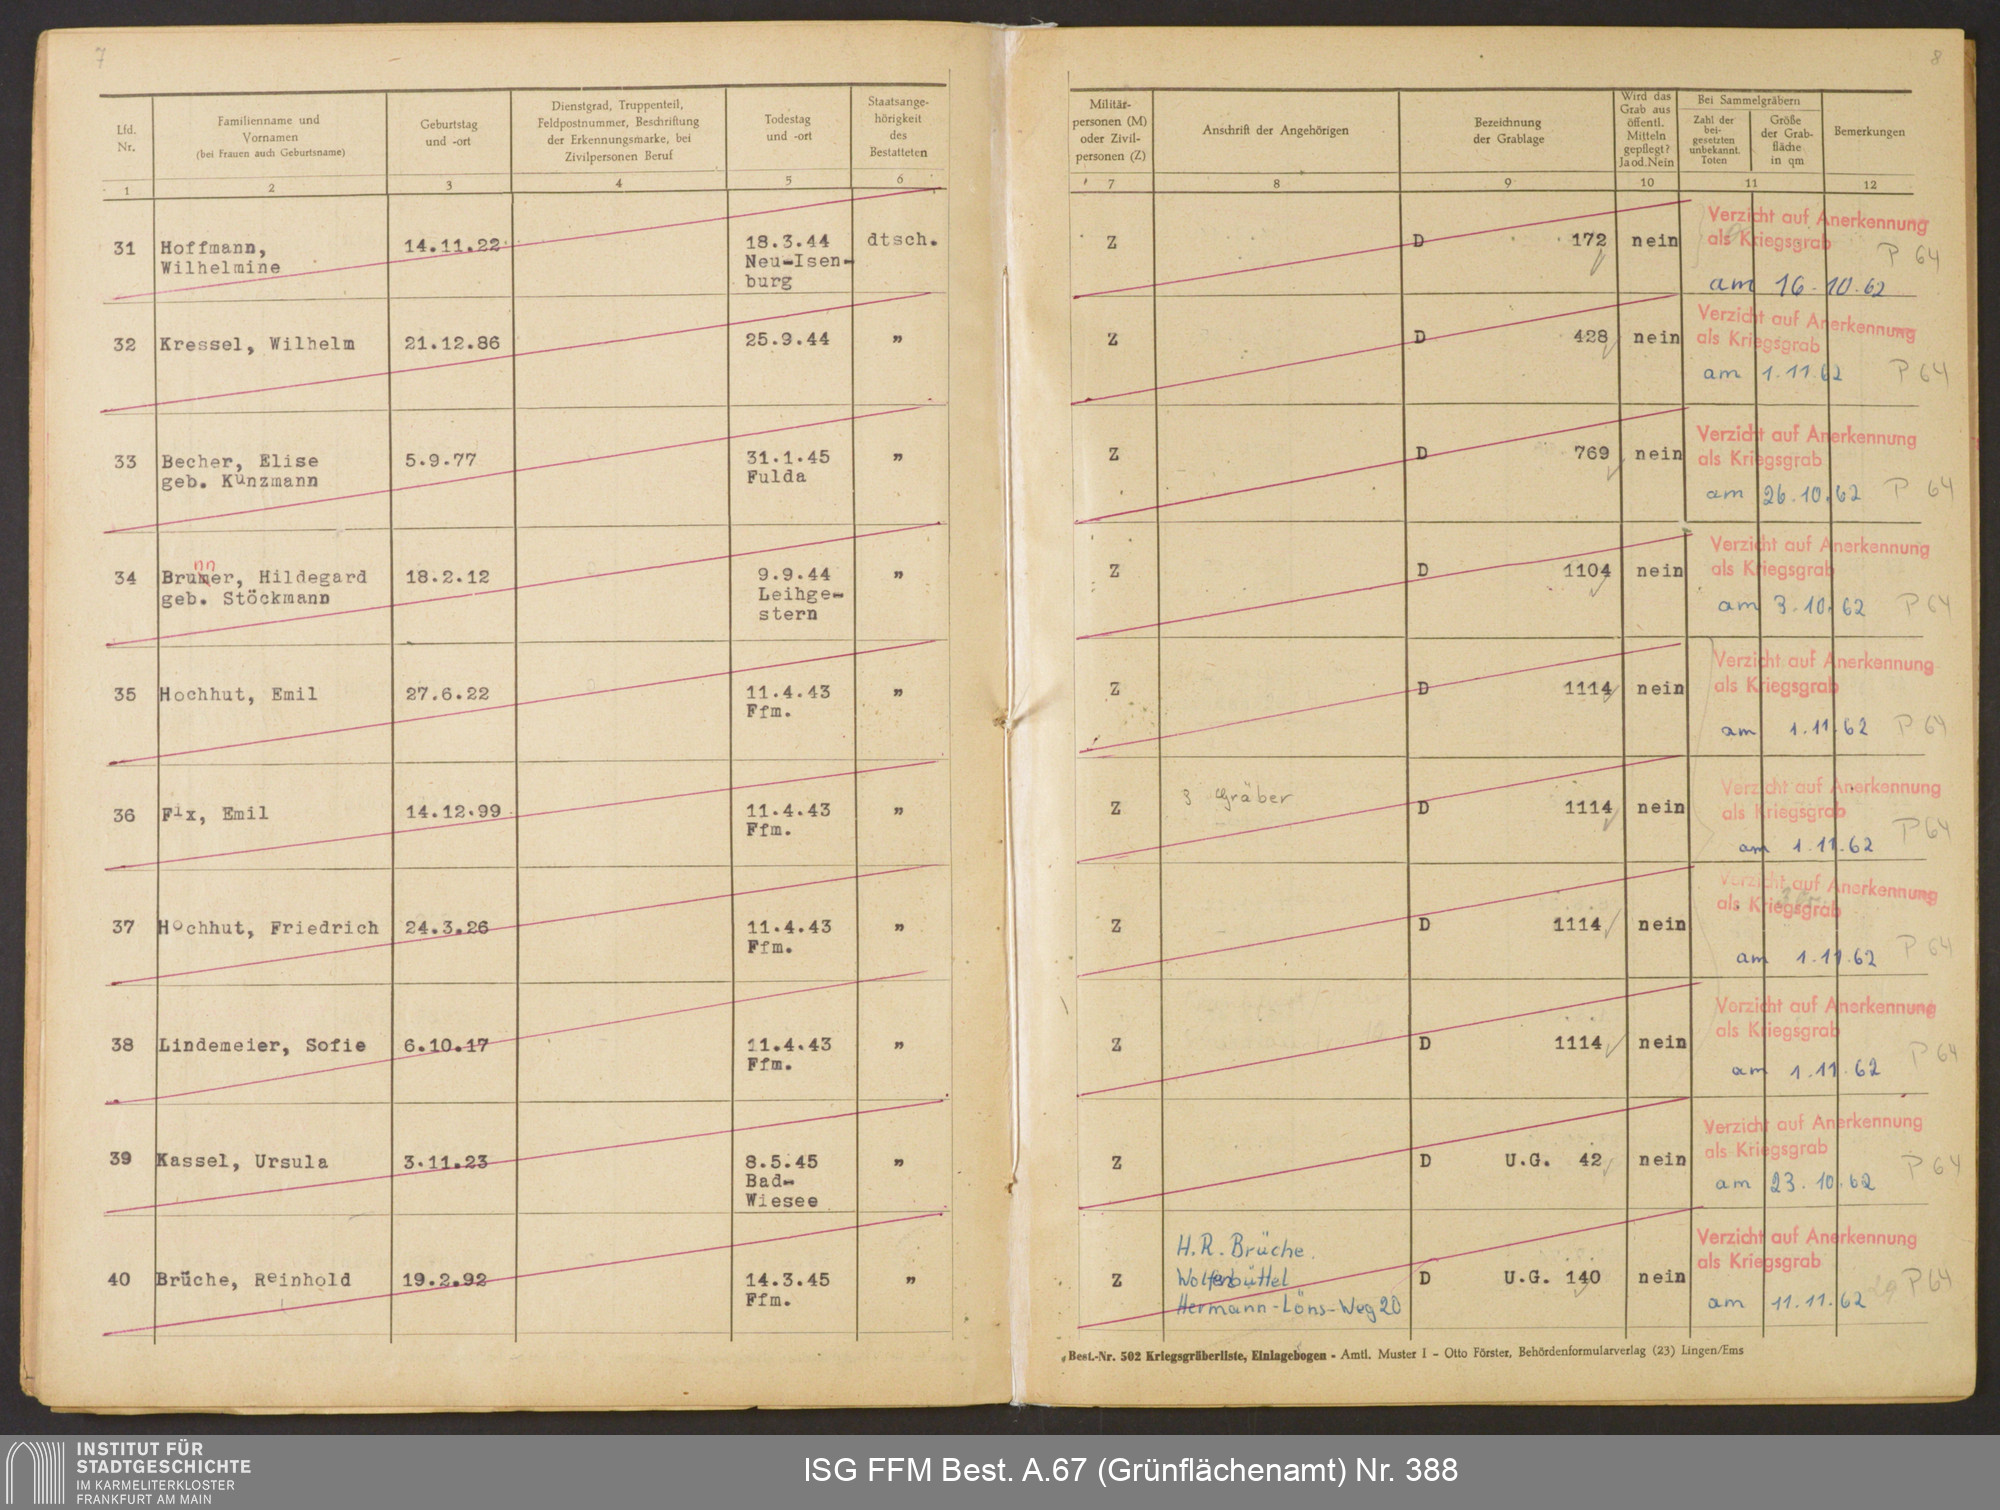 7
Lfd. Nr.
Familienname und Vornamen (bei Frauen auch Geburtsname)
Geburtstag und -ort
Dienstgrad, Truppenteil, Feldpostnummer, Beschriftung der Erkennungsmarke, bei Zivilpersonen Beruf
Todestag und -ort
Staatsange-hörigkeit des Bestatteten
1 2 3 4 5 6
31 Hoffmann, 14.11.22 18.3.44 dtsch.
Wilhelmine Neu-Isen-
burg
32 Kressel, Wilhelm 21.12.86 25.9.44 "
33 Becher, Elise 5.9.77 31.1.45 "
geb. Kunzmann Fulda
nn
34 Brumer, Hildegard 18.2.12 9.9.44 "
geb. Stöckmann Leihge-
stern
35 Hochhut, Emil 27.6.22 11.4.43 "
Ffm.
36 Fix, Emil 14.12.99 11.4.43 "
Ffm.
37 Hochhut, Friedrich 24.3.26 11.4.43 "
Ffm.
38 Lindemeier, Sofie 6.10.17 11.4.43 "
Ffm.
39 Kassel, Ursula 3.11.23 8.5.45 "
Bad-
Wiesee
40 Brüche, Reinhold 19.2.92 14.3.45 "
Ffm.
8
Militär-personen (M) oder Zivil-personen (Z)
Anschrift der Angehörigen
Bezeichnung der Grablage
Wird das Grab aus öffentl. Mitteln gepflegt? Ja od. Nein
Bei Sammelgräbern
Zahl der bei-gesetzten unbekannt. Toten
Größe der Grab-fläche in qm
Bemerkungen
7 8 9 10 11 12
Z D 172 nein Verzicht auf Anerkennung
als Kriegsgrab P 64
am 16.10.62
Z D 428 nein Verzicht auf Anerkennung
als Kriegsgrab
am 1.11.62 P 64
Z D 769 nein Verzicht auf Anerkennung
als Kriegsgrab
am 26.10.62 P 64
Z D 1104 nein Verzicht auf Anerkennung
als Kriegsgrab
am 3.10.62 P 64
Z D 1114 nein Verzicht auf Anerkennung
als Kriegsgrab
am 1.11.62 P 64
Z 3 Gräber D 1114 nein Verzicht auf Anerkennung
als Kriegsgrab
am 1.11.62 P 64
Z D 1114 nein Verzicht auf Anerkennung
als Kriegsgrab
am 1.11.62 P 64
Z D 1114 nein Verzicht auf Anerkennung
als Kriegsgrab
am 1.11.62 P 64
Z D U.G. 42 nein Verzicht auf Anerkennung
als Kriegsgrab
am 23.10.62 P 64
H. R. Brüche.
Z Wolfenbüttel D U.G. 140 nein Verzicht auf Anerkennung
als Kriegsgrab
Hermann-Löns-Weg 20 am 11.11.62 P 64
Best.-Nr. 502 Kriegsgräberliste, Einlagebogen - Amtl. Muster I - Otto Förster, Behördenformularverlag (23) Lingen/Ems
INSTITUT FÜR
STADTGESCHICHTE
IM KARMELITERKLOSTER
FRANKFURT AM MAIN
ISG FFM Best. A.67 (Grünflächenamt) Nr. 388